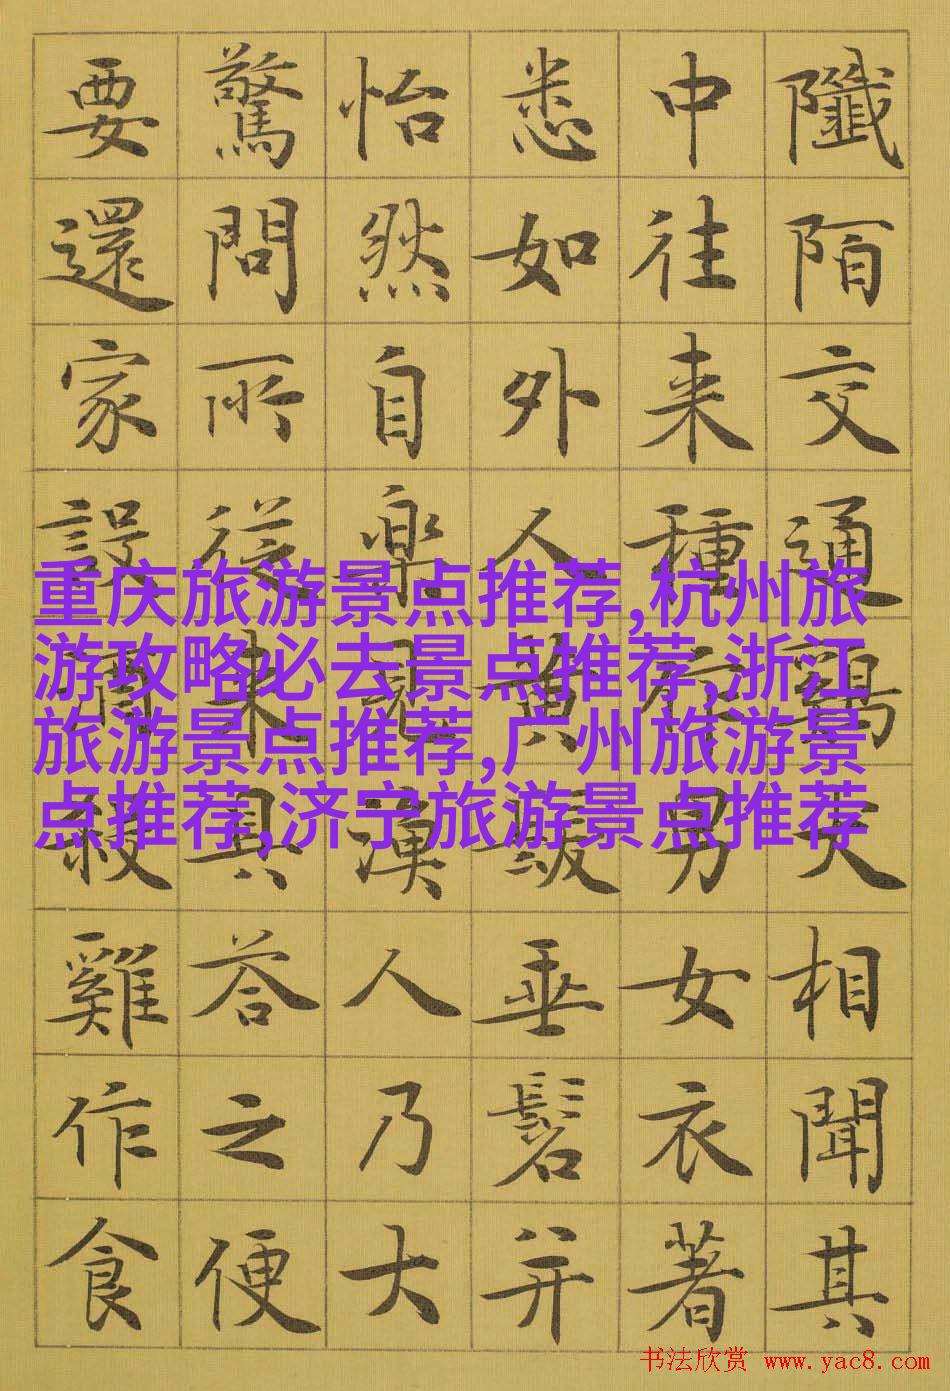 陌交通鷄犬相聞其
中往来種作男女衣著
悉如外人黄髮垂髫并
怡然自樂見漁人乃大
驚問所從来具答之便
要還家設酒殺雞作食
重庆旅游景点推荐,杭州旅
游攻略必去景点推荐,浙江
旅游景点推荐,广州旅游景
点推荐,济宁旅游景点推荐
书法欣赏 www.yac8.com